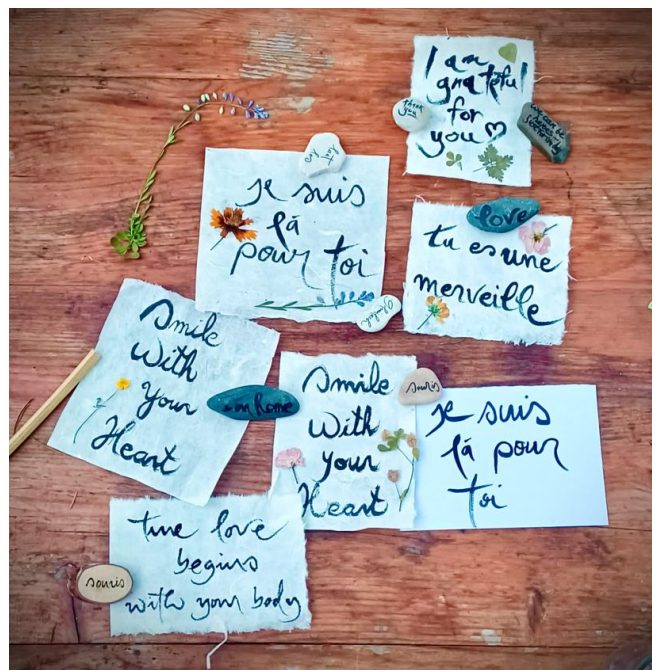 I am
grateful
for
you
Thank
you
let
go
je suis
là
pour toi
love
tu es une
merveille
Smile
With
Your
Heart
Smile
With
your
Heart
souris
je suis
là pour
toi
true love
begins
with your body
souris